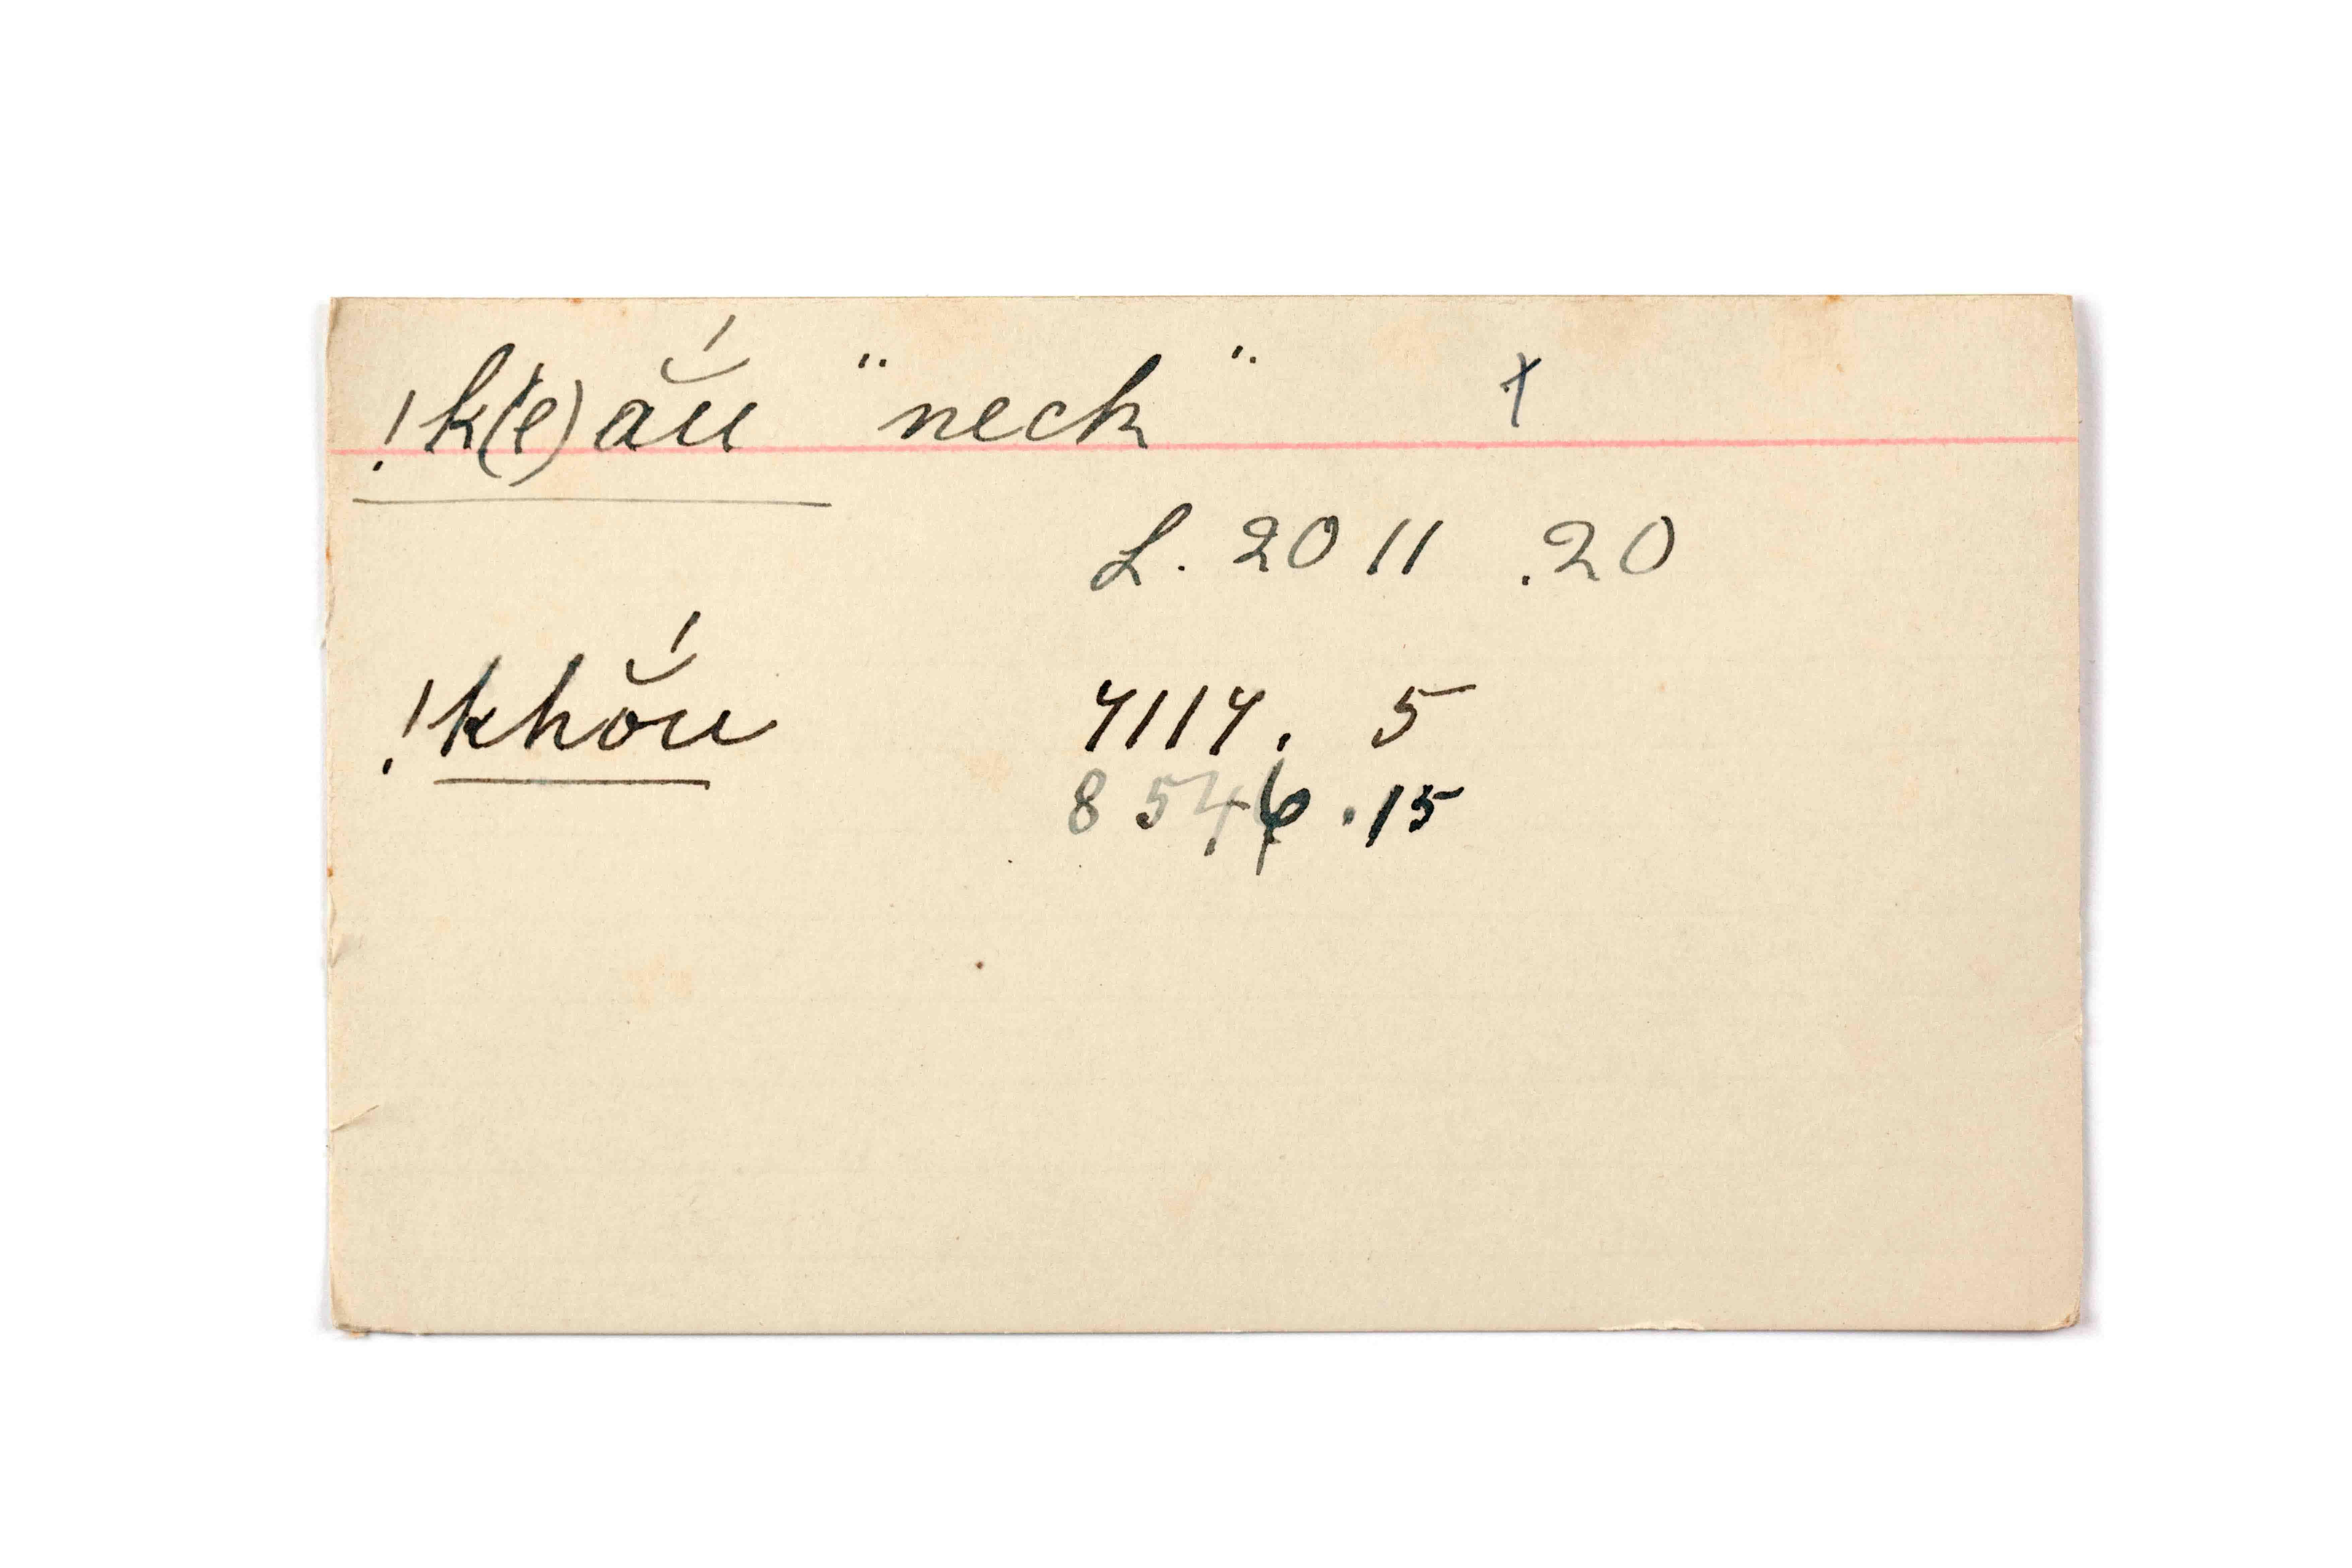 !k(e)ắu "neck" +
L. 2011 .20
!khŏ́u 4114. 5
8546 .15